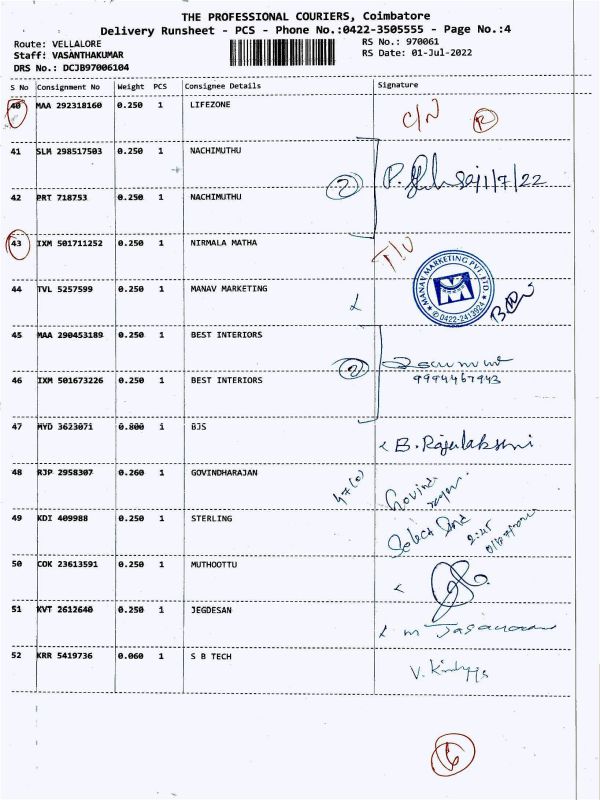 THE PROFESSIONAL COURIERS, Coimbatore
Delivery Runsheet - PCS - Phone No.:0422-3505555 - Page No.:4
Route: VELLALORE
RS No.: 970061
Staff: VASANTHAKUMAR
RS Date: 01-Jul-2022
DRS No.: DCJB97006104
S No Consignment No Weight PCS Consignee Details Signature
40 MAA 292318160 0.250 1 LIFEZONE C/N R
41 SLM 298517503 0.250 1 NACHIMUTHU
2 1/7/22
42 PRT 718753 0.250 1 NACHIMUTHU
43 IXM 501711252 0.250 1 NIRMALA MATHA
44 TVL 5257599 0.250 1 MANAV MARKETING MANAV MARKETING PVT. LTD. 0422-2413924
45 MAA 290453189 0.250 1 BEST INTERIORS
2
46 IXM 501673226 0.250 1 BEST INTERIORS 9994467943
47 MYD 3623071 0.800 1 BJS B. Rajalakshmi
48 RJP 2958307 0.260 1 GOVINDHARAJAN Govindarajan
49 KDI 409988 0.250 1 STERLING
50 COK 23613591 0.250 1 MUTHOOTTU
51 KVT 2612640 0.250 1 JEGDESAN
52 KRR 5419736 0.060 1 S B TECH
6